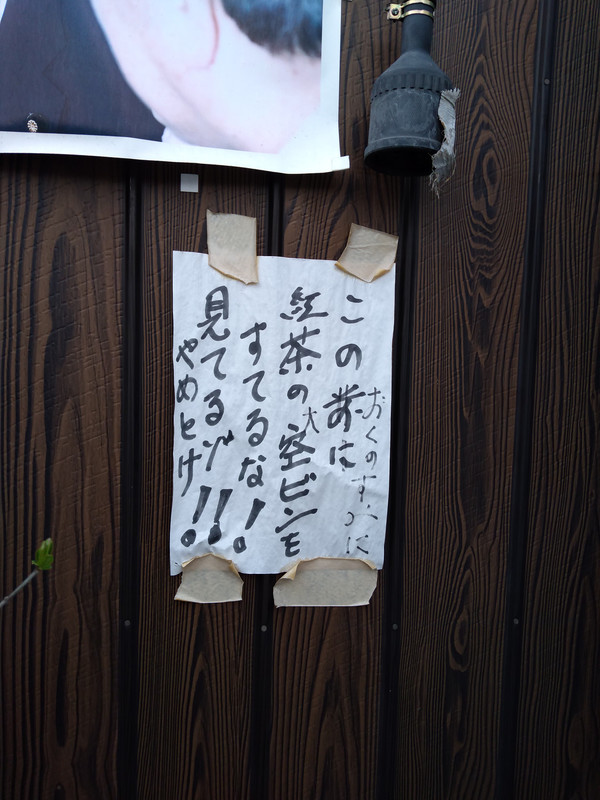 おくの
この前に
紅茶の大空ビンを
すてるな!
見てるゾ!!
やめとけ!